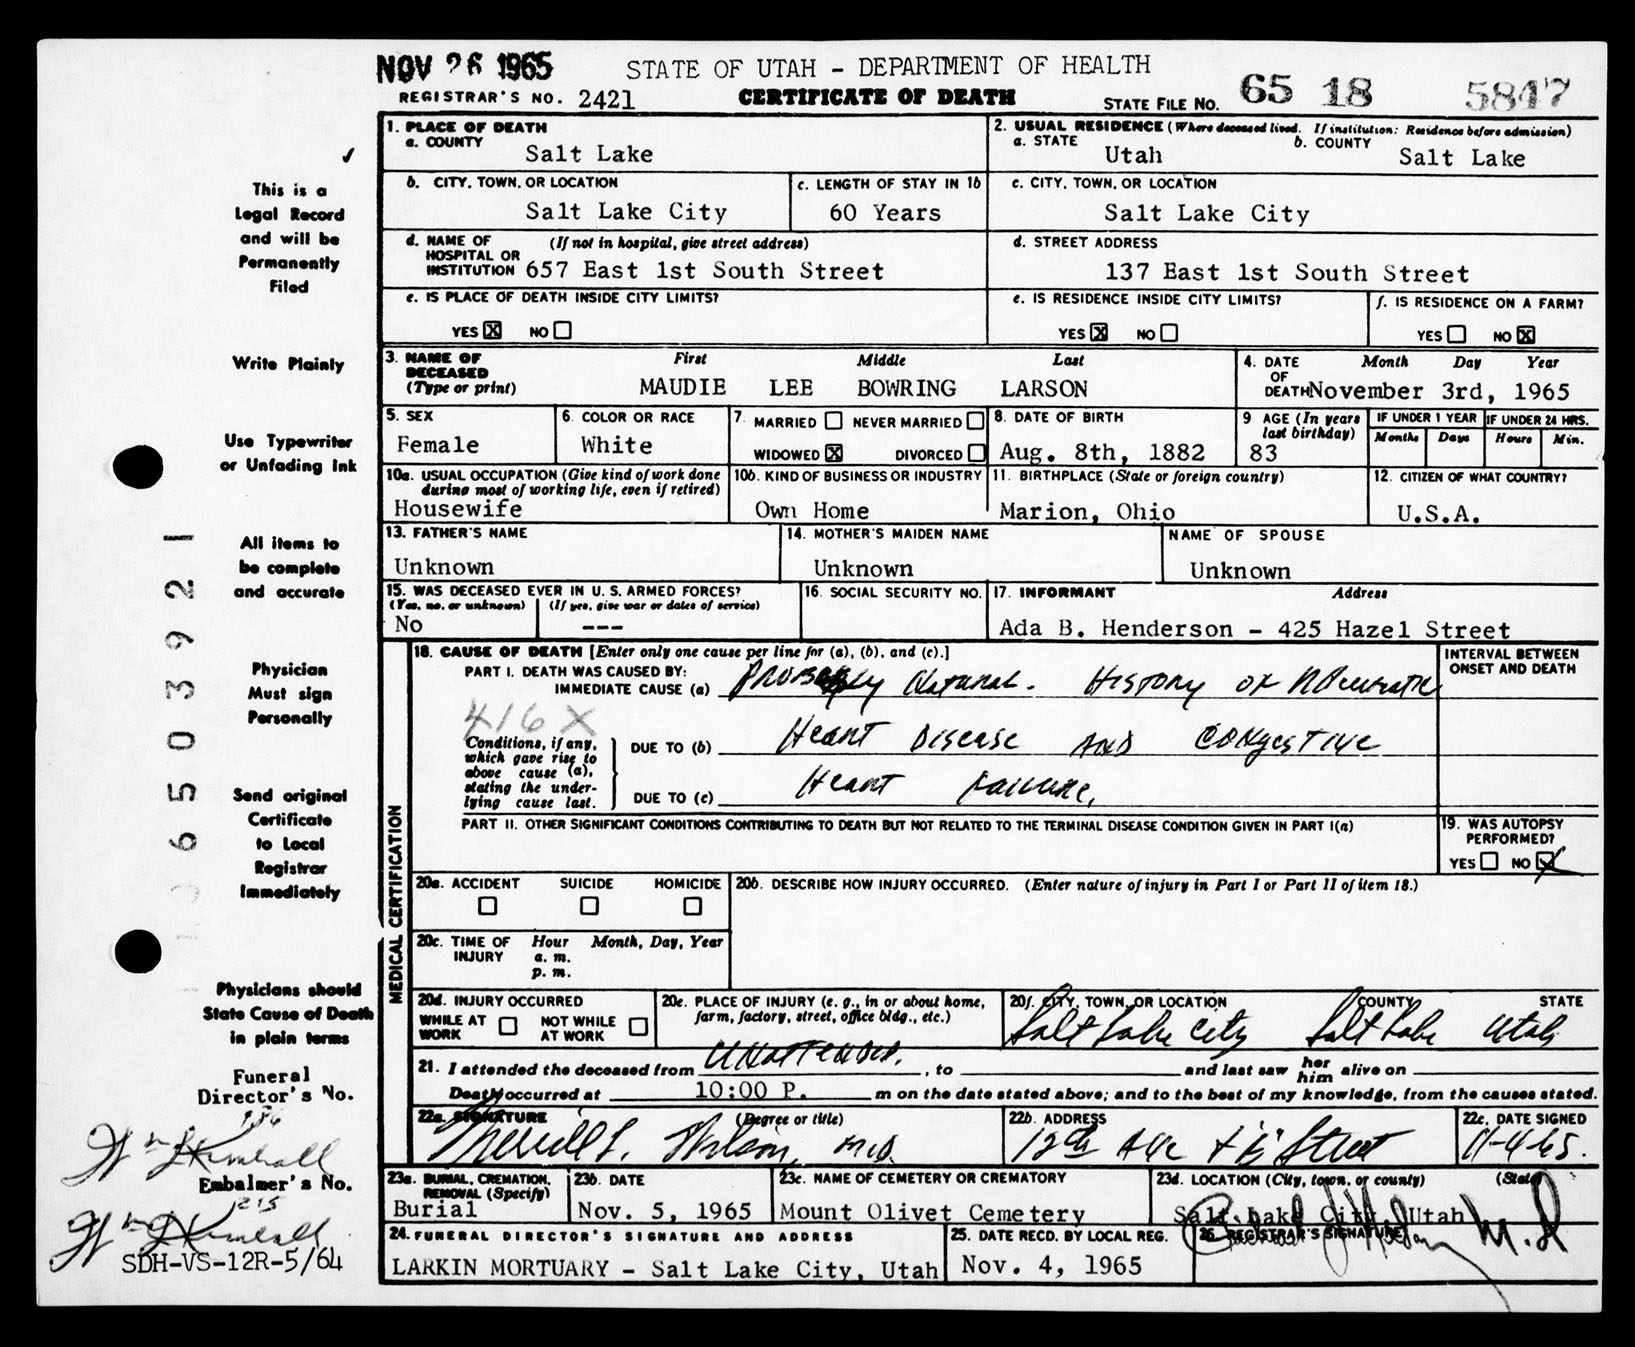 NOV 26 1965
STATE OF UTAH - DEPARTMENT OF HEALTH
REGISTRAR'S NO. 2421
CERTIFICATE OF DEATH
STATE FILE NO. 65 18 5847
This is a
Legal Record
and will be
Permanently
Filed
Write Plainly
Use Typewriter
or Unfading Ink
All items to
be complete
and accurate
Physician
Must sign
Personally
Send original
Certificate
to Local
Registrar
Immediately
Physicians should
State Cause of Death
in plain terms
Funeral
Director's No.
186
Wm J Kimball
Embalmer's No.
215
Wm J Kimball
SDH-VS-12R-5/64
650392 1
1. PLACE OF DEATH
a. COUNTY
Salt Lake
2. USUAL RESIDENCE (Where deceased lived. If institution: Residence before admission)
a. STATE Utah
b. COUNTY Salt Lake
b. CITY, TOWN, OR LOCATION
Salt Lake City
c. LENGTH OF STAY IN 1b
60 Years
c. CITY, TOWN, OR LOCATION
Salt Lake City
d. NAME OF HOSPITAL OR INSTITUTION (If not in hospital, give street address)
657 East 1st South Street
d. STREET ADDRESS
137 East 1st South Street
e. IS PLACE OF DEATH INSIDE CITY LIMITS?
YES X NO
e. IS RESIDENCE INSIDE CITY LIMITS?
YES X NO
f. IS RESIDENCE ON A FARM?
YES NO X
3. NAME OF DECEASED (Type or print)
First Middle Last
MAUDIE LEE BOWRING LARSON
4. DATE OF DEATH
Month Day Year
November 3rd, 1965
5. SEX
Female
6. COLOR OR RACE
White
7. MARRIED NEVER MARRIED
WIDOWED X DIVORCED
8. DATE OF BIRTH
Aug. 8th, 1882
9 AGE (In years last birthday)
83
IF UNDER 1 YEAR
Months Days
IF UNDER 24 HRS.
Hours Min.
10a. USUAL OCCUPATION (Give kind of work done during most of working life, even if retired)
Housewife
10b. KIND OF BUSINESS OR INDUSTRY
Own Home
11. BIRTHPLACE (State or foreign country)
Marion, Ohio
12. CITIZEN OF WHAT COUNTRY?
U.S.A.
13. FATHER'S NAME
Unknown
14. MOTHER'S MAIDEN NAME
Unknown
NAME OF SPOUSE
Unknown
15. WAS DECEASED EVER IN U. S. ARMED FORCES?
(Yes, no, or unknown) (If yes, give war or dates of service)
No ---
16. SOCIAL SECURITY NO.
17. INFORMANT Address
Ada B. Henderson - 425 Hazel Street
MEDICAL CERTIFICATION
18. CAUSE OF DEATH [Enter only one cause per line for (a), (b), and (c).]
INTERVAL BETWEEN ONSET AND DEATH
PART I. DEATH WAS CAUSED BY:
IMMEDIATE CAUSE (a) Probably Natural. History of Rheumatic
416X
Conditions, if any, which gave rise to above cause (a), stating the underlying cause last.
DUE TO (b) Heart Disease and Congestive
DUE TO (c) Heart Failure.
PART II. OTHER SIGNIFICANT CONDITIONS CONTRIBUTING TO DEATH BUT NOT RELATED TO THE TERMINAL DISEASE CONDITION GIVEN IN PART I(a)
19. WAS AUTOPSY PERFORMED?
YES NO X
20a. ACCIDENT SUICIDE HOMICIDE
20b. DESCRIBE HOW INJURY OCCURRED. (Enter nature of injury in Part I or Part II of item 18.)
20c. TIME OF INJURY Hour Month, Day, Year
a. m.
p. m.
20d. INJURY OCCURRED
WHILE AT WORK NOT WHILE AT WORK
20e. PLACE OF INJURY (e. g., in or about home, farm, factory, street, office bldg., etc.)
20f. CITY, TOWN, OR LOCATION COUNTY STATE
Salt Lake City Salt Lake Utah
21. I attended the deceased from Unattended. , to and last saw her him alive on
Death occurred at 10:00 P. m on the date stated above; and to the best of my knowledge, from the causes stated.
22a. SIGNATURE (Degree or title)
Merrill L. Wilson, M.D.
22b. ADDRESS
12th Ave & "E" Street
22c. DATE SIGNED
11-4-65.
23a. BURIAL, CREMATION, REMOVAL (Specify)
Burial
23b. DATE
Nov. 5, 1965
23c. NAME OF CEMETERY OR CREMATORY
Mount Olivet Cemetery
23d. LOCATION (City, town, or county) (State)
Salt Lake City, Utah
24. FUNERAL DIRECTOR'S SIGNATURE AND ADDRESS
LARKIN MORTUARY - Salt Lake City, Utah
25. DATE RECD. BY LOCAL REG.
Nov. 4, 1965
26. REGISTRAR'S SIGNATURE
M.D